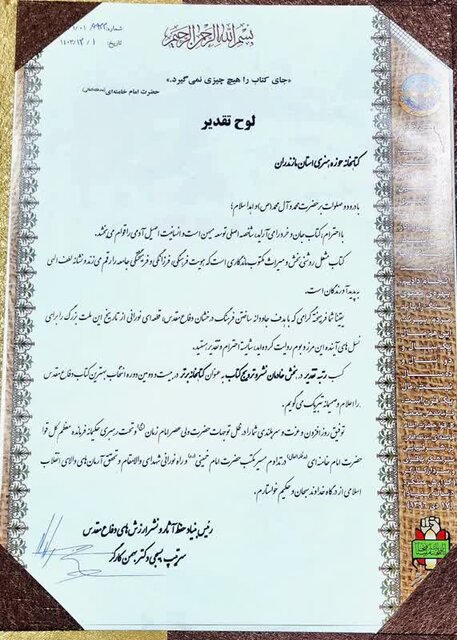 بسم الله الرحمن الرحیم
شماره:
تاریخ: ۱۴۰۳/۱۲/۱
«جای کتاب را هیچ چیزی نمی‌گیرد.»
حضرت امام خامنه‌ای
لوح تقدیر
کتابخانه حوزه هنری استان مازندران
با درود و صلوات بر حضرت محمد و آل محمد (ص) و اهداء سلام؛
با احترام، کتاب جان و خرد را می آراید، شاخصه اصلی توسعه میهن است و انسانیت اصیل آدمی را قوام می بخشد.
کتاب مشعل روشنی بخش و میراث مکتوب ماندگاری است که هویت فرهنگی، فرزانگی و فرهیختگی جامعه را رقم می زند و نشانه لطف الهی
پدیدآورندگان است.
یقیناً شما فرهیخته گرامی که با هدف جاودانه ساختن فرهنگ درخشان دفاع مقدس، قطعه‌ای نورانی از تاریخ این ملت بزرگ را برای
نسل های آینده این مرز و بوم روایت کرده اید، شایسته احترام و تقدیر هستید.
کسب رتبه تقدیر در بخش خادمان نشر و ترویج کتاب به عنوان کتابخانه برتر در بیست و دومین دوره انتخاب بهترین کتاب دفاع مقدس
را اعلام و صمیمانه تبریک می گویم.
توفیق روز افزون و عزت و سربلندی شما را در ظل توجهات حضرت ولی عصر امام زمان و تحت رهبری حکیمانه فرمانده معظم کل قوا
حضرت امام خامنه ای در تداوم مسیر مکتب حضرت امام خمینی و راه نورانی شهدای والامقام و تحقق آرمان های والای انقلاب
اسلامی از درگاه خداوند سبحان و حکیم خواستارم.
رئیس بنیاد حفظ آثار و نشر ارزش های دفاع مقدس
سرتیپ بسیجی دکتر بهمن کارگر